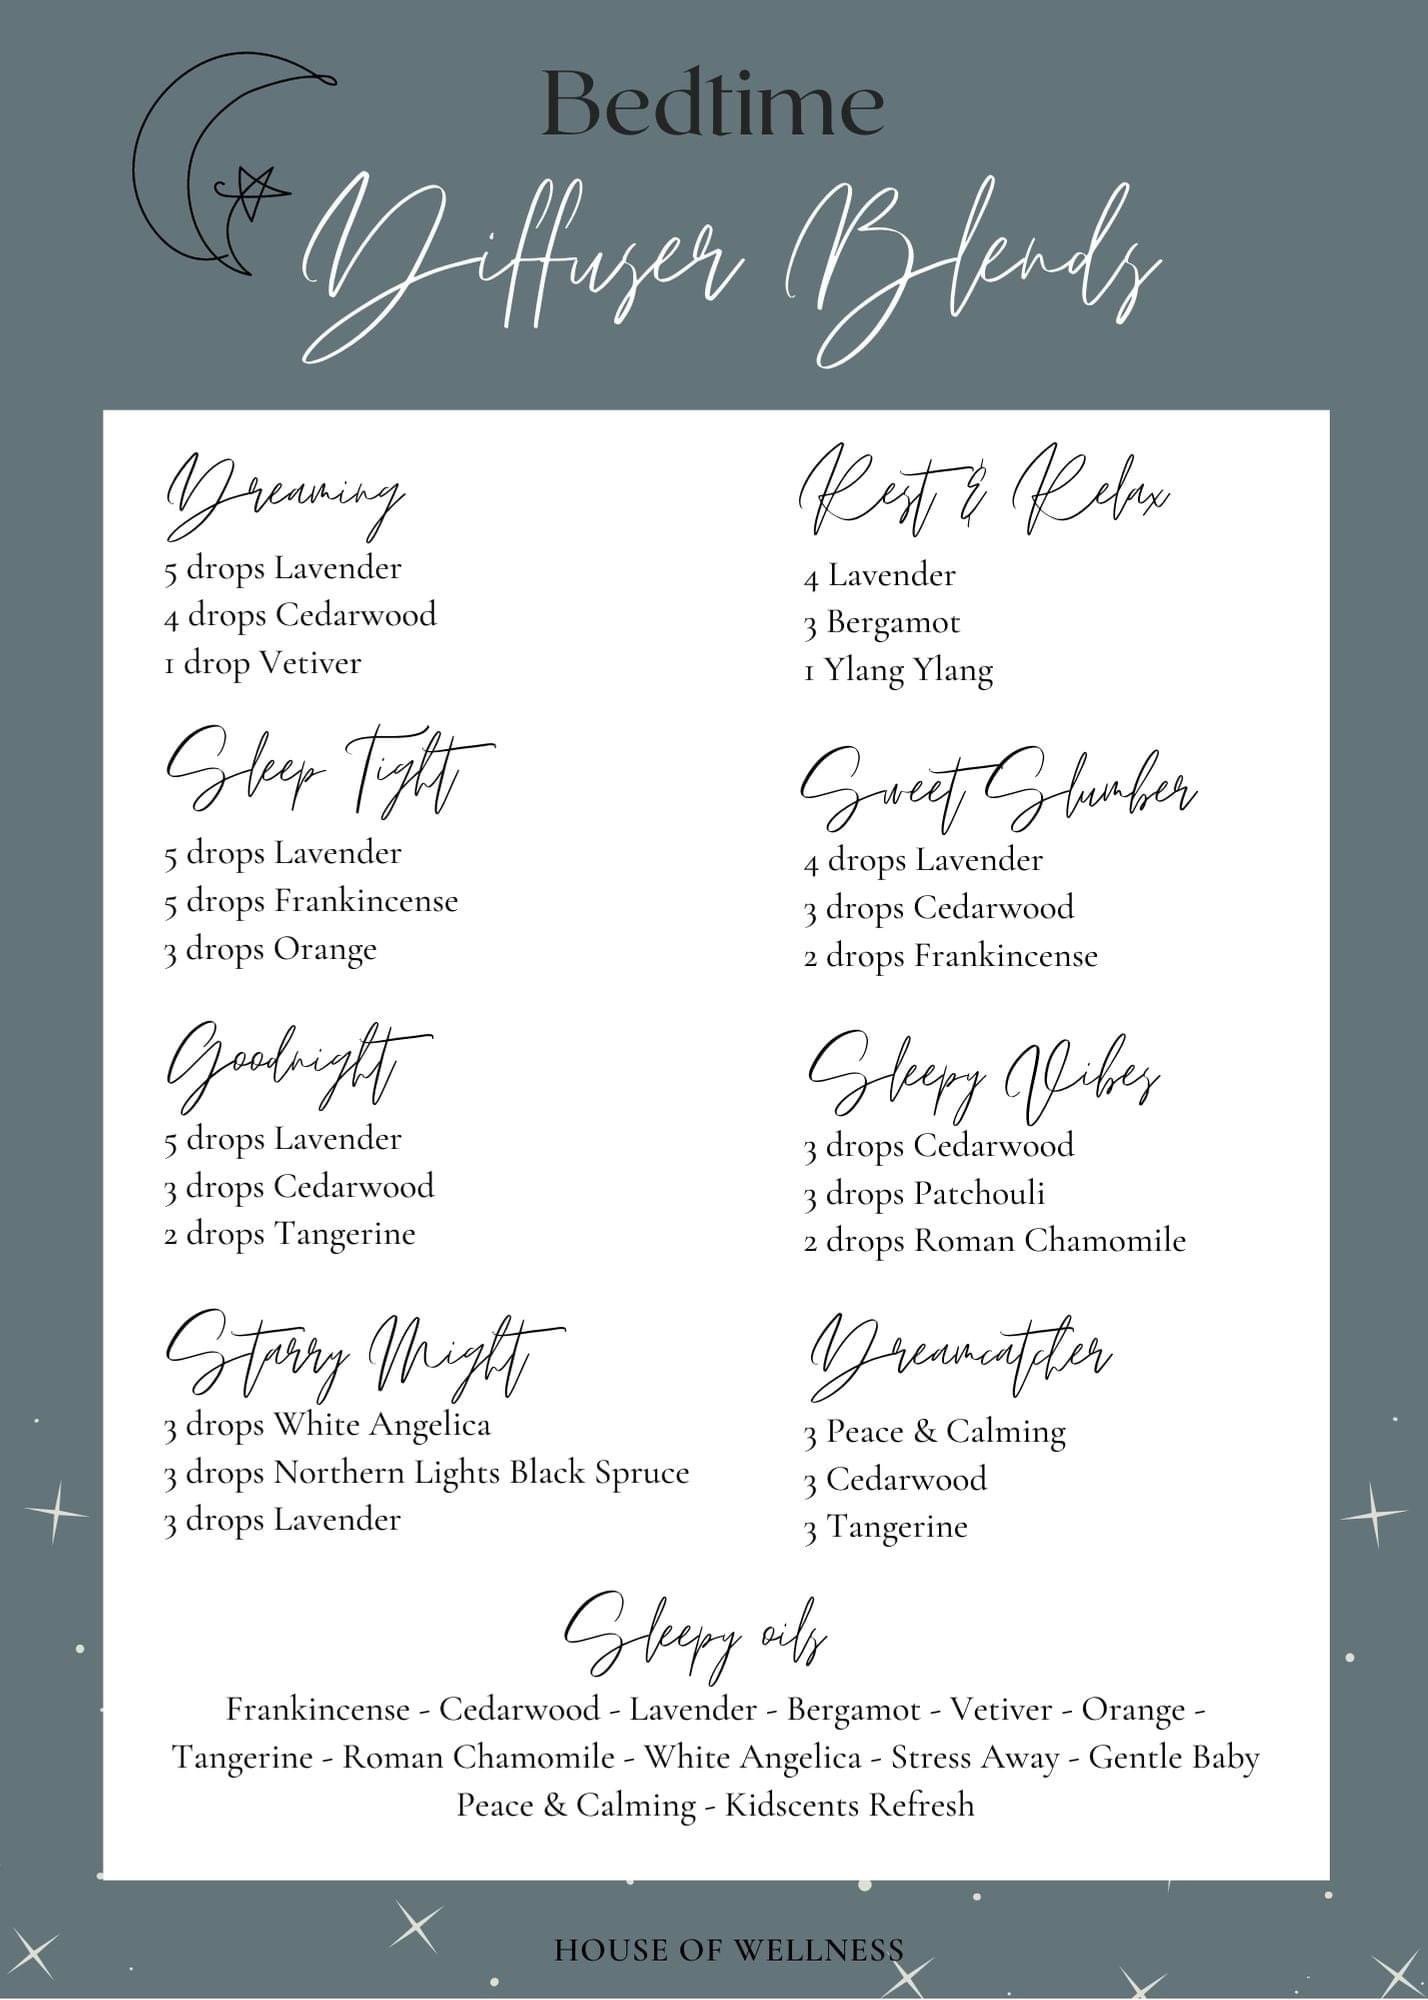 Bedtime
Diffuser Blends
Dreaming
5 drops Lavender
4 drops Cedarwood
1 drop Vetiver
Sleep Tight
5 drops Lavender
5 drops Frankincense
3 drops Orange
Goodnight
5 drops Lavender
3 drops Cedarwood
2 drops Tangerine
Starry Night
3 drops White Angelica
3 drops Northern Lights Black Spruce
3 drops Lavender
Rest & Relax
4 Lavender
3 Bergamot
1 Ylang Ylang
Sweet Slumber
4 drops Lavender
3 drops Cedarwood
2 drops Frankincense
Sleepy Vibes
3 drops Cedarwood
3 drops Patchouli
2 drops Roman Chamomile
Dreamcatcher
3 Peace & Calming
3 Cedarwood
3 Tangerine
Sleepy oils
Frankincense - Cedarwood - Lavender - Bergamot - Vetiver - Orange -
Tangerine - Roman Chamomile - White Angelica - Stress Away - Gentle Baby
Peace & Calming - Kidscents Refresh
HOUSE OF WELLNESS